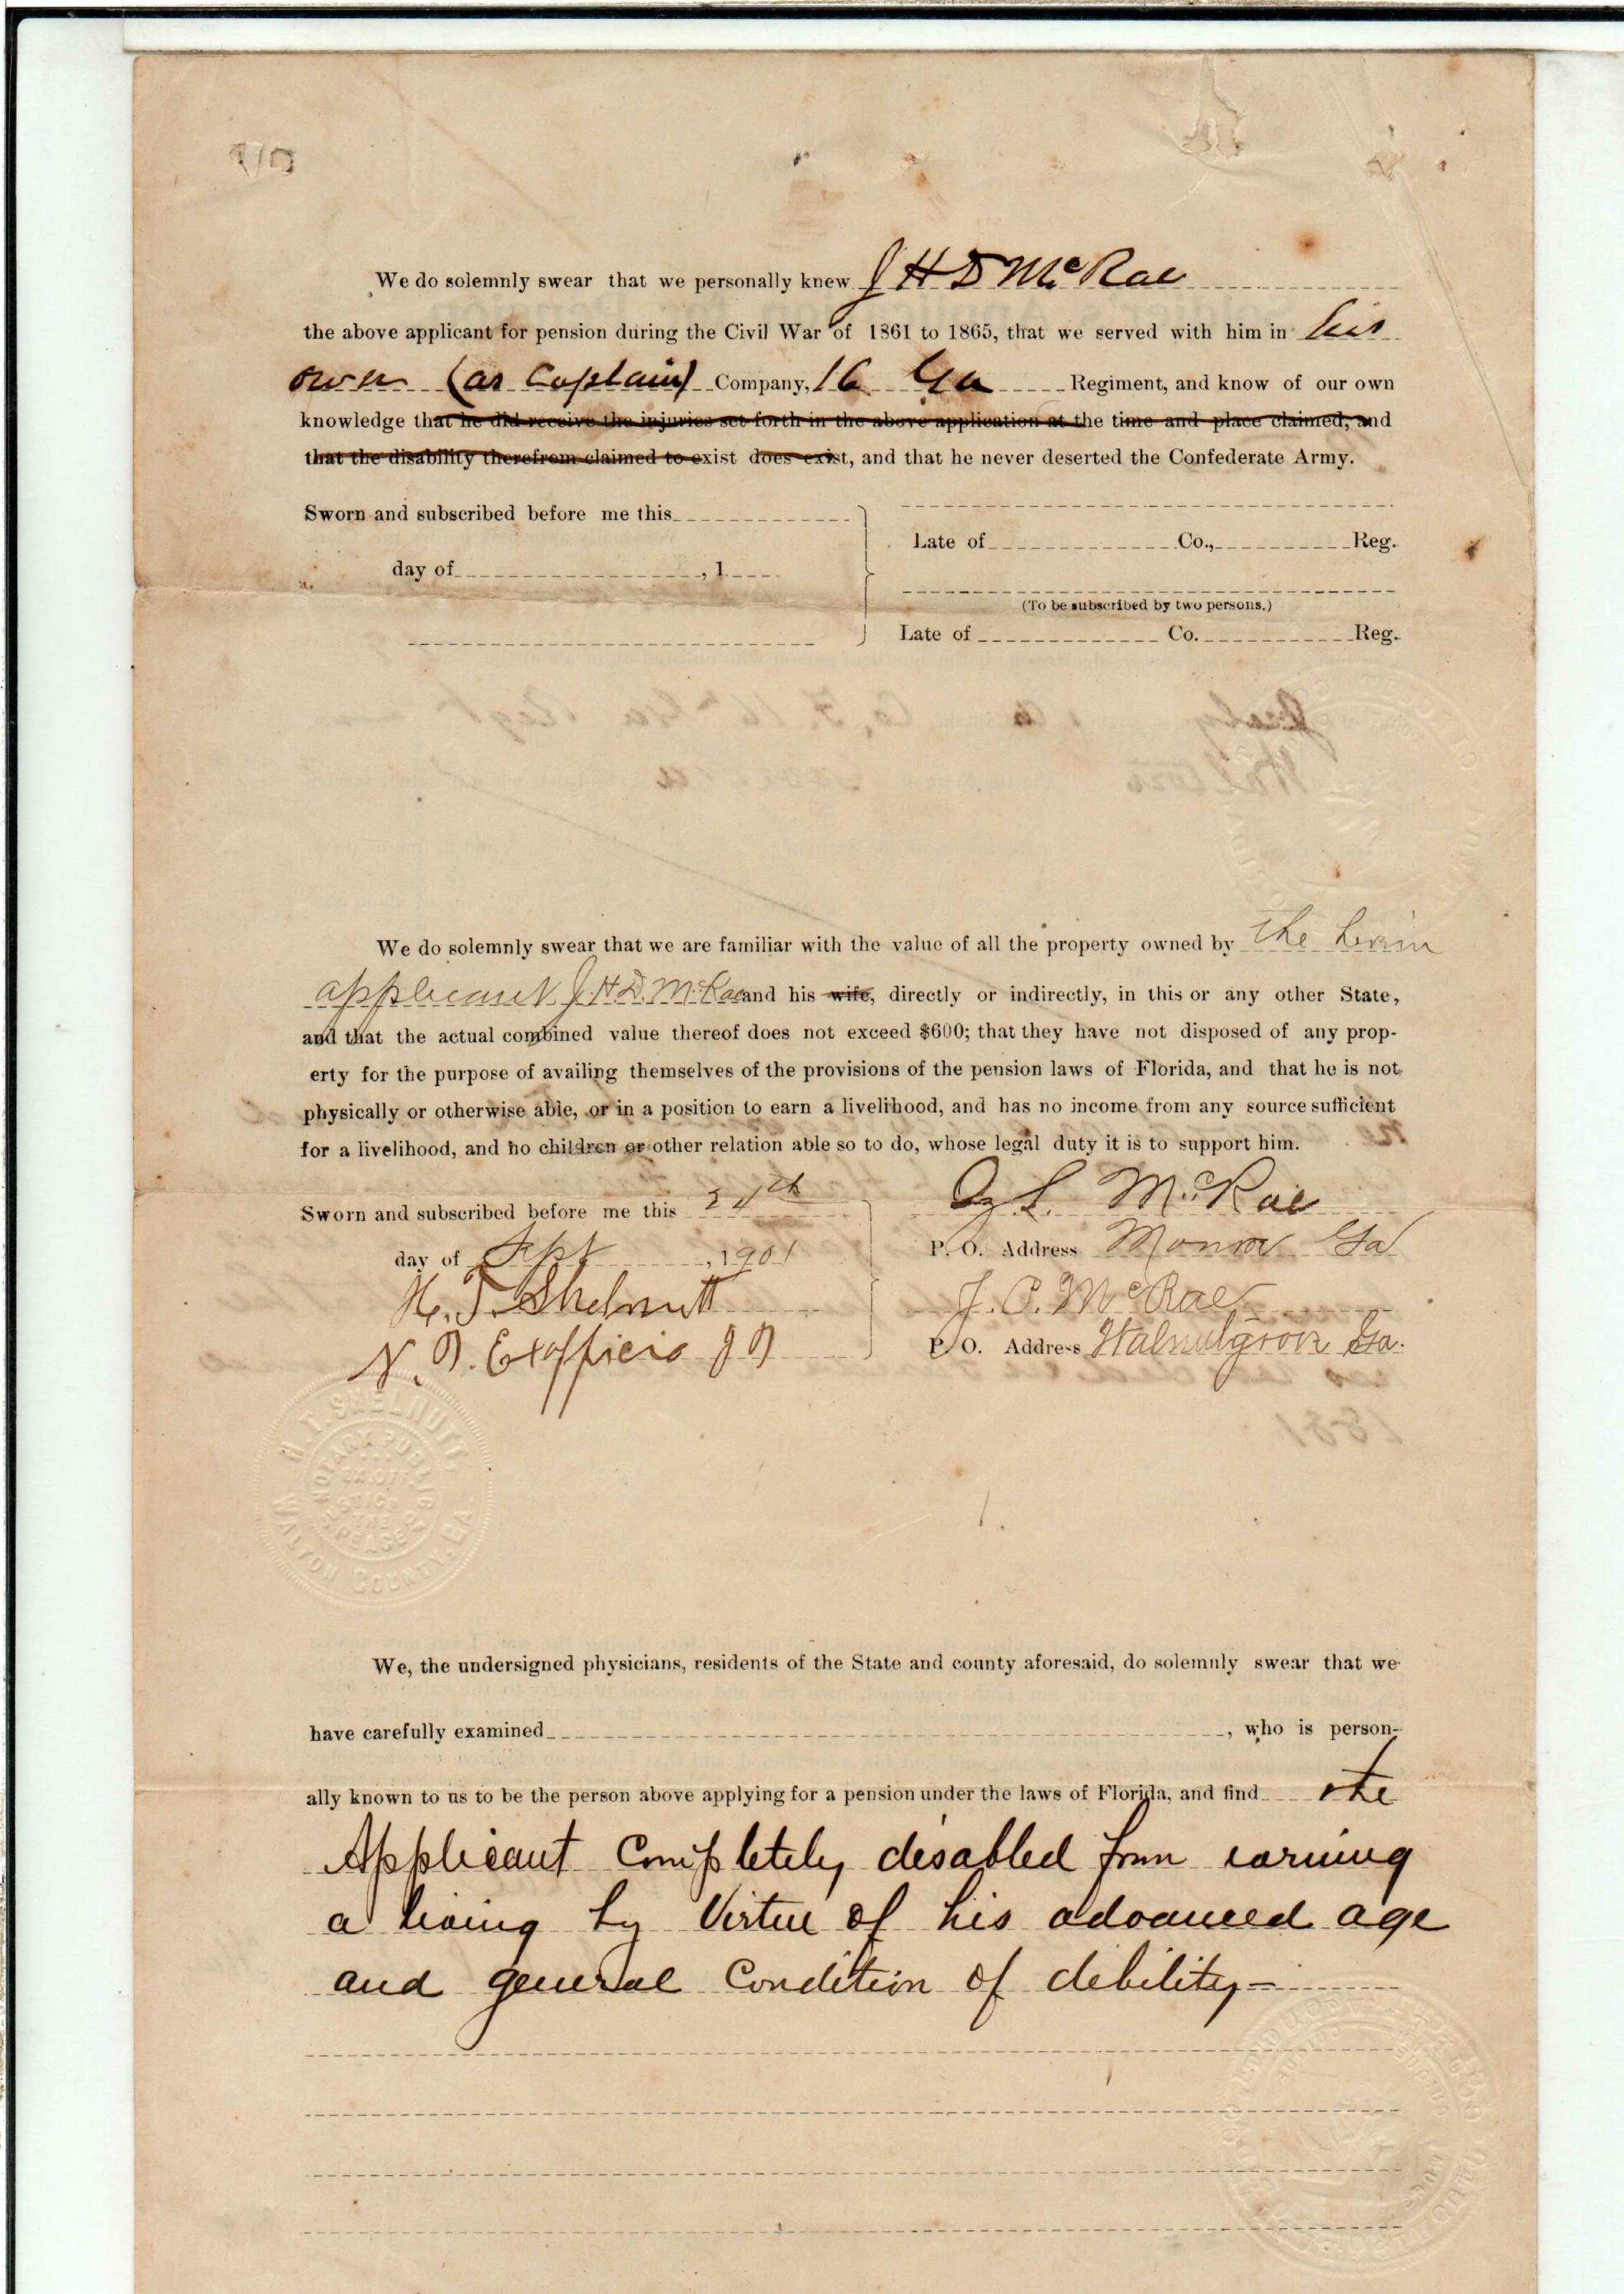 We do solemnly swear that we personally knew J H D McRae
the above applicant for pension during the Civil War of 1861 to 1865, that we served with him in his
own (as Captain) Company, 16 Ga Regiment, and know of our own
knowledge that he did receive the injuries set forth in the above application at the time and place claimed, and
that the disability therefrom claimed to exist does exist, and that he never deserted the Confederate Army.
Sworn and subscribed before me this
Late of Co., Reg.
day of , 1
(To be subscribed by two persons.)
Late of Co. Reg.
We do solemnly swear that we are familiar with the value of all the property owned by the herein
applicant J. H. D. McRae and his wife, directly or indirectly, in this or any other State,
and that the actual combined value thereof does not exceed $600; that they have not disposed of any prop-
erty for the purpose of availing themselves of the provisions of the pension laws of Florida, and that he is not
physically or otherwise able, or in a position to earn a livelihood, and has no income from any source sufficient
for a livelihood, and no children or other relation able so to do, whose legal duty it is to support him.
Sworn and subscribed before me this 24th
L. McRae
day of Sept , 1901
P. O. Address Monroe Ga
H. T. Shelnutt
J. C. McRae
N. P. Exofficio J P
P. O. Address Walnutgrove Ga.
H. T. SHELNUTT,
NOTARY PUBLIC
EX. OFF.
JUSTICE
THE
PEACE
WALTON COUNTY, GA.
We, the undersigned physicians, residents of the State and county aforesaid, do solemnly swear that we
have carefully examined , who is person-
ally known to us to be the person above applying for a pension under the laws of Florida, and find the
Applicant Completely disabled from earning
a living by Virtue of his advanced age
and general Condition of debility-